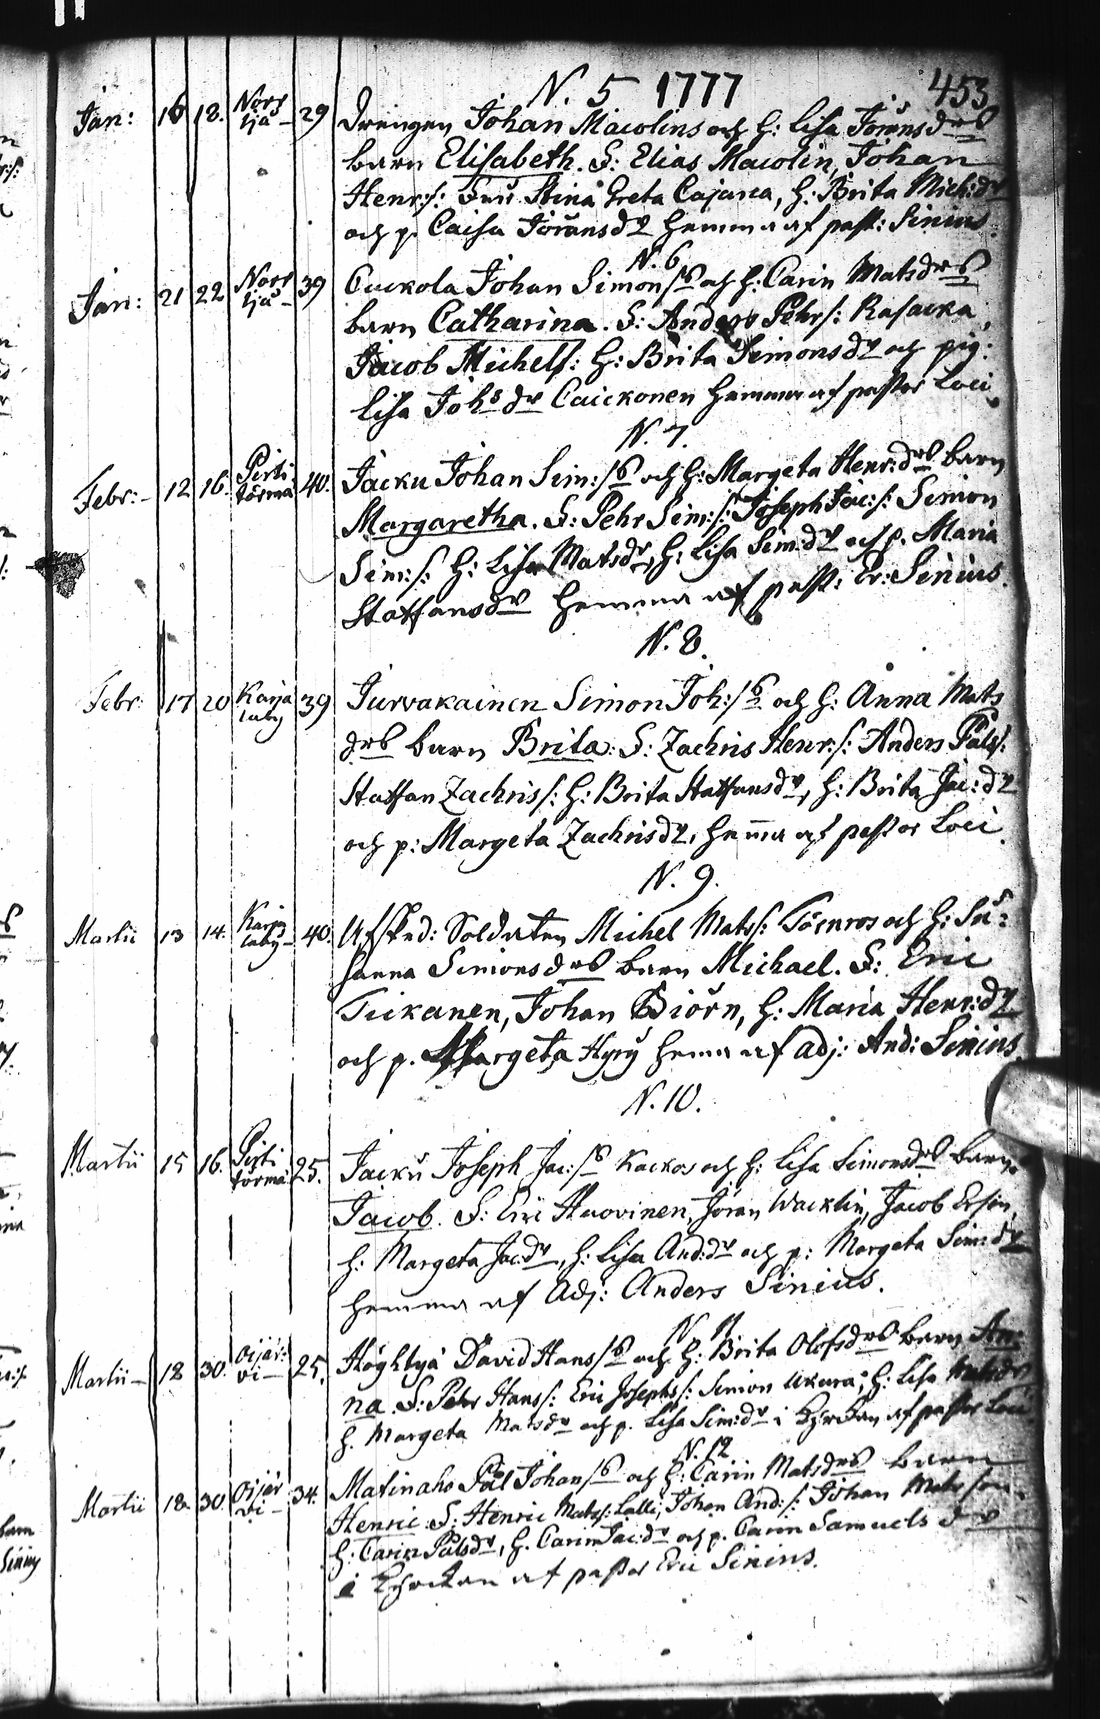 N. 5 1777 453
Jan: 16 18. Nors sjå 29 Drengen Johan Macolins och h: Lisa Jöransdrs
barn Elisabeth. S: Elias Macolin, Johan
Henr:s: Fru Stina Greta Cajana, h: Brita Mich:dr
och p. Caisa Jöransdr hemma af past: Sinius.
N. 6
Jan: 21 22 Nors sjå 39 Cuckola Johan Simons och h: Carin Matsdrs
barn Catharina. S: Anders Pehrs: Rasacka,
Jacob Michels: h: Brita Simonsdr och pig:
Lisa Johs dr Caickonen hemma af pastor Loci.
N. 7.
Febr: 12 16. Pirti törmä 40. Jacku Johan Sim:s och h: Margeta Henr:drs barn
Margaretha. S: Pehr Sim:s: Joseph Jac:s: Simon
Sim:s: h: Lisa Matsdr, h: Lisa Sim:dr och p. Maria
Staffansdr hemma af past: Er: Sinius.
N. 8.
Febr: 17 20 Karja laby 39 Jurvakainen Simon Joh:s och h: Anna Mats
drs barn Brita: S: Zachris Henr:s: Anders Påls:
Staffan Zachris: h: Brita Staffansdr, h: Brita Jac:dr
och p: Margeta Zachrisdr, hemma af pastor Loci.
N. 9.
Martii 13 14. Karja laby 40. Afsked: Soldaten Michel Mats: Törnros och h: Su-
hanna Simonsdrs barn Michael. S: Eric
Tikanen, Johan Biörn, h: Maria Henr:dr
och p. Margeta Hyry hemma af adj: And: Sinius
N. 10.
Martii 15 16. Pirti törmä 25. Jacku Joseph Jac:s Kackos och h: Lisa Simonsdrs barn
Jacob. S: Eric Huovinen, Jöran Wacklin, Jacob Ersson,
h: Margeta Jac:dr, h: Lisa And:dr och p: Margeta Sim:dr
hemma af Adj: Anders Sinius.
N 11
Martii 18 30. Oijär: vi 25. Höghlyä David Hans och h: Brita Olofsdrs barn An-
na. S: Pehr Hans: Eric Josephs: Simon Ukura; h: Lisa Matsdr
h. Margeta Matsdr och p. Lisa Sim:dr i Kyrckan af pastor Loci
N. 12
Martii 18 30. Oijär vi 34. Matinaho Pål Johans och h: Carin Matsdrs barn
Henric. S: Henric Mats: Lalli, Johan And:s: Johan Matsson.
h: Carin Pålsdr, h. Carin Jac:dr och p. Carin Samuels dr
i Kyrckan af pastor Eric Sinius.